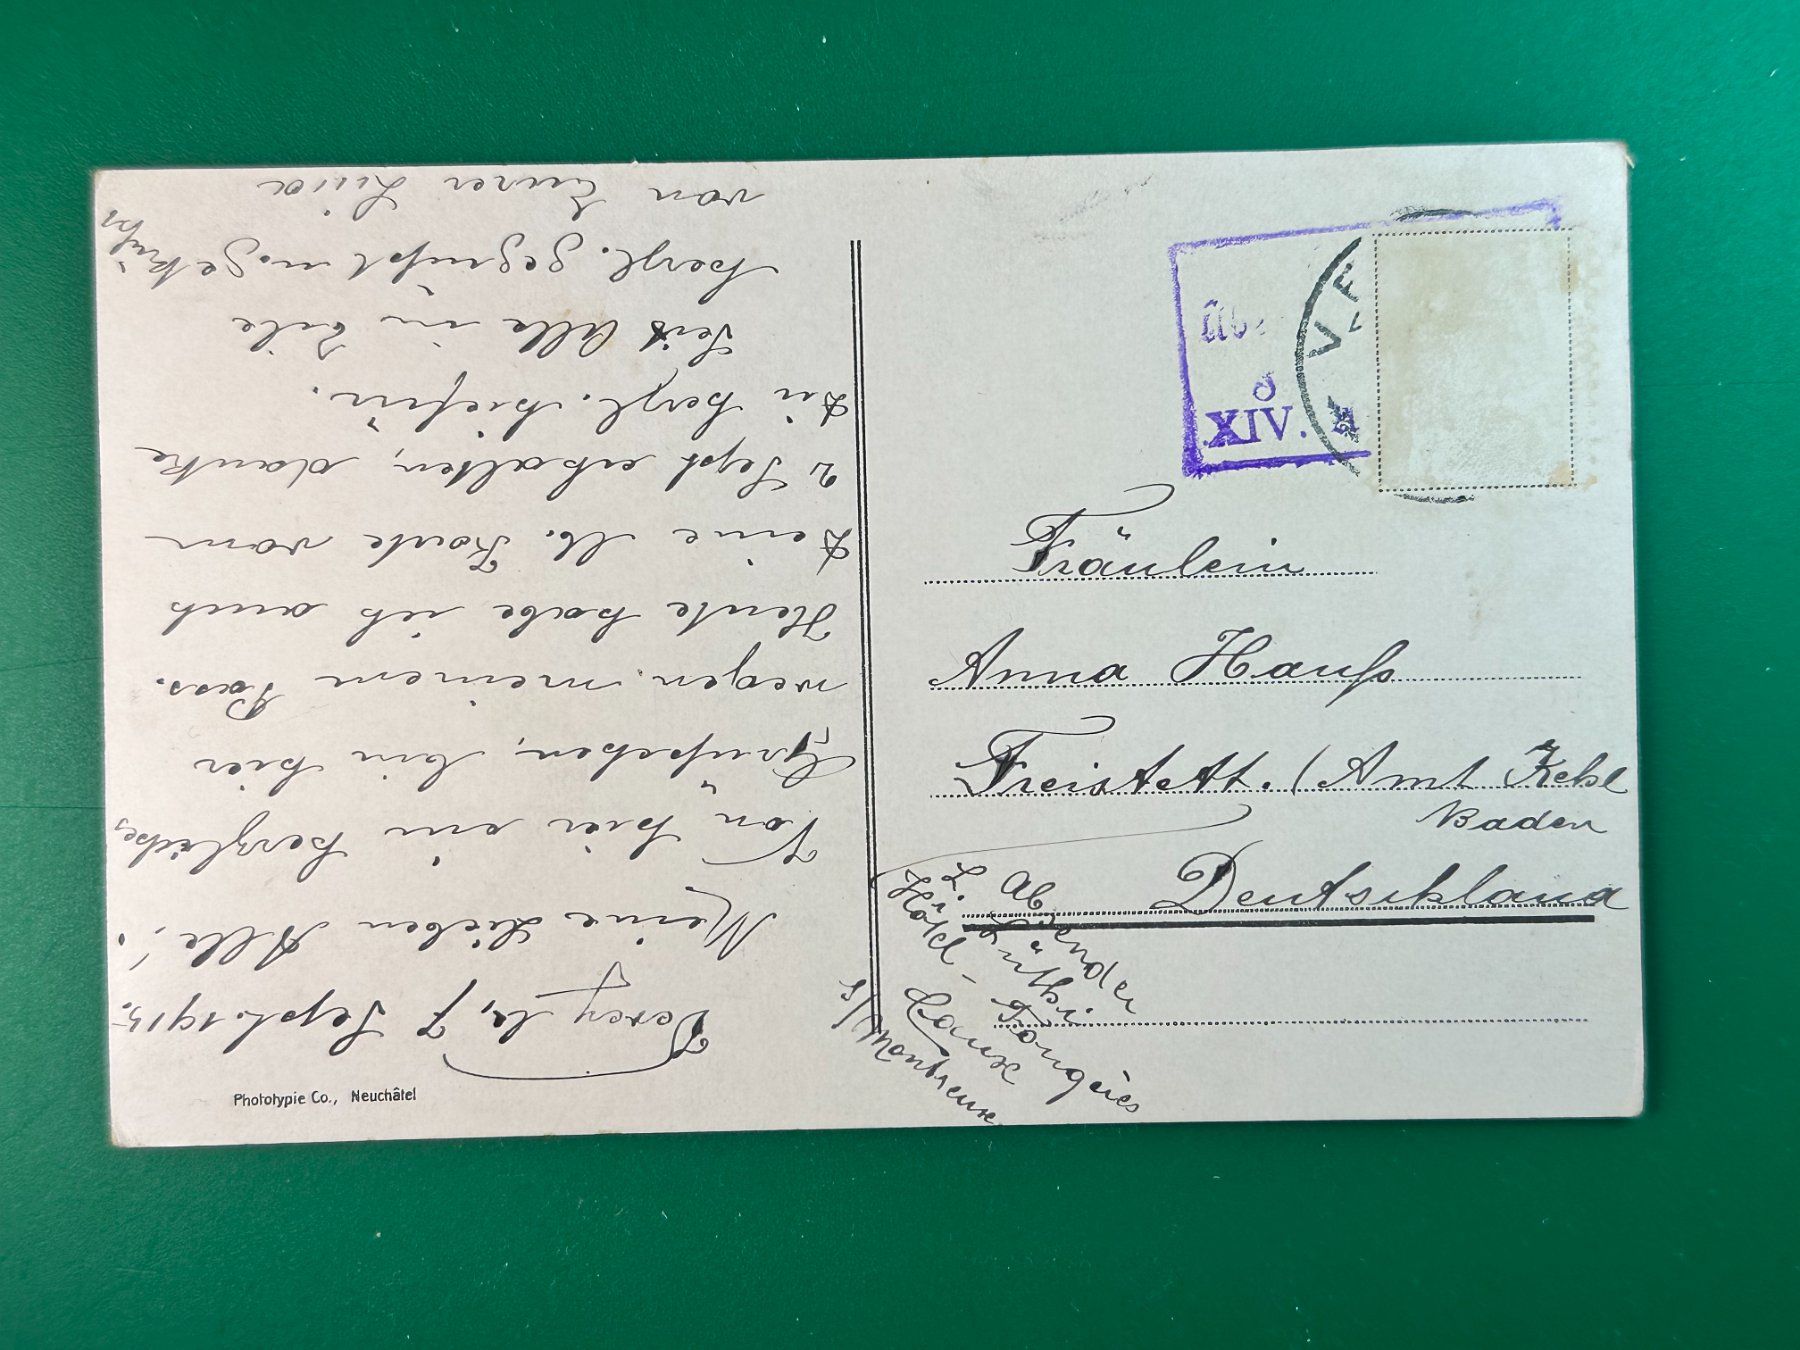 Vevey de, 7 Sept. 1915.
Meine Lieben Alle!
Von hier ein herzliches
Grüßchen, bin hier
wegen meinem Pass.
Heute habe ich auch
Deine lb. Karte vom
2 Sept erhalten, danke
Dir herzl. hiefür.
Seit Alle in Eile
herzl. gegrüßt u. geküßt
von Eurer Luise
Phototypie Co., Neuchâtel
XIV.
Fräulein
Anna Hauß
Freistett. (Amt Kehl
Baden
Deutschland
Absender
Hôtel
Caux
s/ Montreux